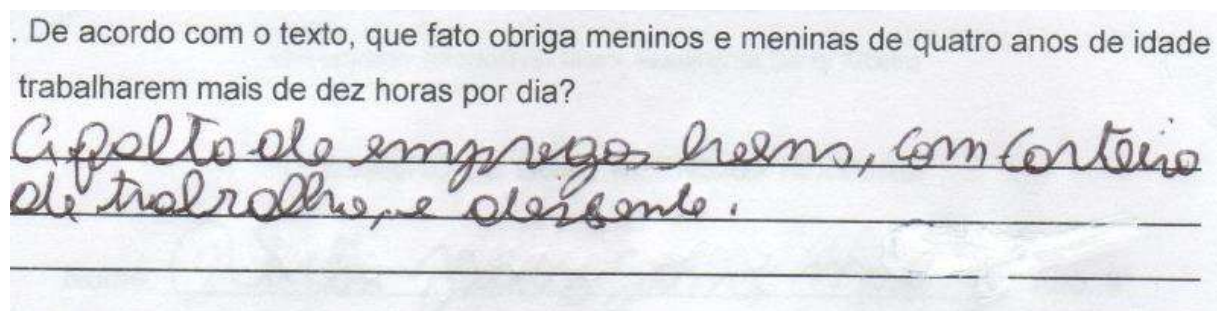 . De acordo com o texto, que fato obriga meninos e meninas de quatro anos de idade
trabalharem mais de dez horas por dia?
A falta de empregos bem, com carteira
de trabalho, e descente.